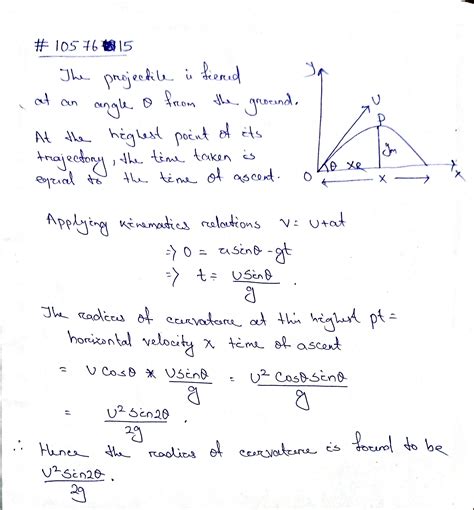 # 10576 15
The projectile is fiered
at an angle θ from the ground.
At the highest point of its
trajectory, the time taken is
equal to the time of ascent.
y
U
P
ym
θ
xe
O
x
x
Applying kinematics relations V = U+at
=> 0 = usinθ - gt
=> t = USinθ/g .
The radius of curvature at this highest pt =
horizontal velocity x time of ascent
= U Cosθ * Usinθ/g = U² Cosθ Sinθ/g
= U² Sin2θ/2g
∴ Hence the radius of curvature is found to be
U² Sin2θ/2g .